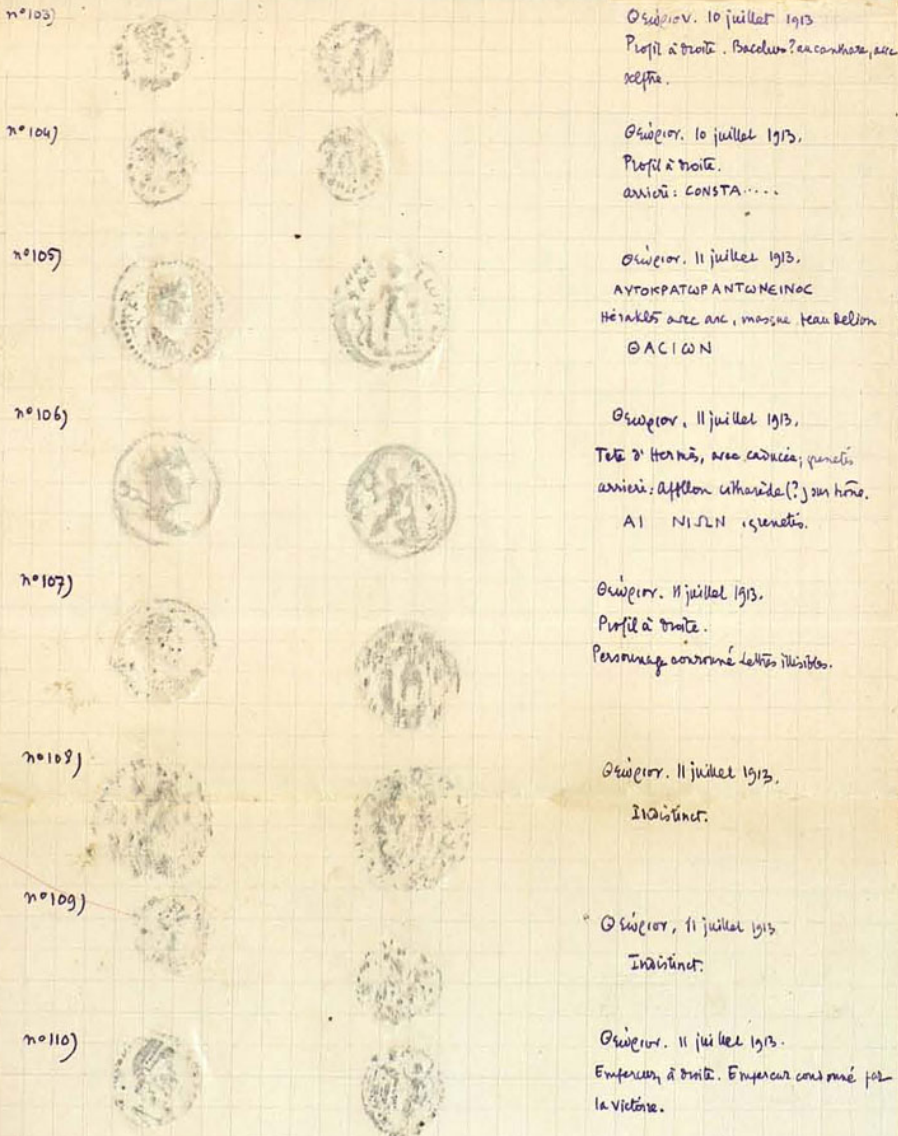 n° 103)
Θεώριον. 10 juillet 1913
Profil à droite. Bacchus? au canthare, avec
sceptre.
n° 104)
Θεώριον. 10 juillet 1913.
Profil à droite.
arrière: CONSTA.....
n° 105)
Θεώριον. 11 juillet 1913.
ΑΥΤΟΚΡΑΤωΡ ΑΝΤωΝΕΙΝΟC
Héraklès avec arc, masque, peau de lion
ΘΑCΙωΝ
n° 106)
Θεώριον, 11 juillet 1913.
Tete d'Hermès, avec caducée; grenetis
arrière: Apollon citharède (?) sur trône.
ΑΙ ΝΙΩΝ, grenetis.
n° 107)
Θεώριον. 11 juillet 1913.
Profil à droite.
Personnage couronné. Lettres illisibles.
n° 108)
Θεώριον. 11 juillet 1913.
Indistinct.
n° 109)
Θεώριον, 11 juillet 1913
Indistinct.
n° 110)
Θεώριον. 11 juillet 1913.
Empereur, à droite. Empereur couronné par
la victoire.